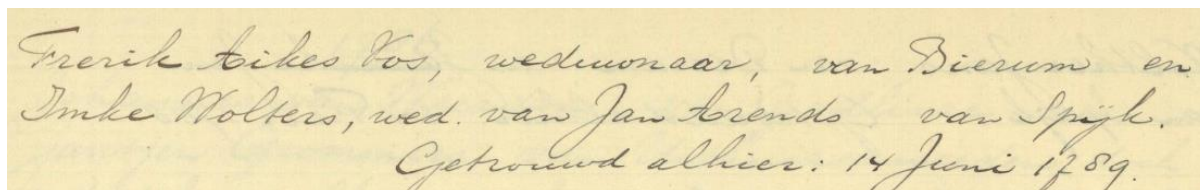 Frerik Aikes Vos, weduwnaar, van Bierum en
Imke Wolters, wed. van Jan Arends van Spijk.
Getrouwd alhier: 14 Juni 1789.